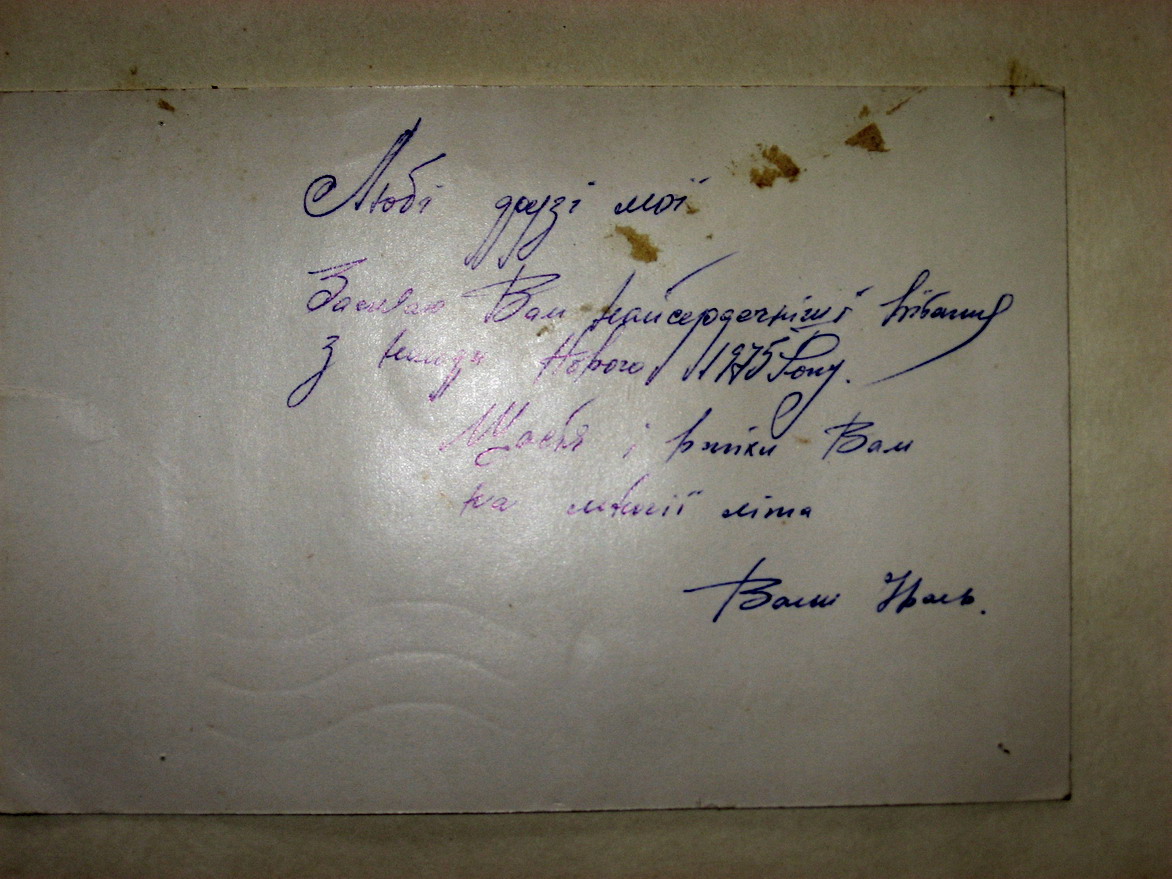 Любі друзі мої
Засилаю Вам найсердечніші вітання
з нагоди Нового 1975 Року.
Щастя і втіхи Вам
на многії літа
Ваш